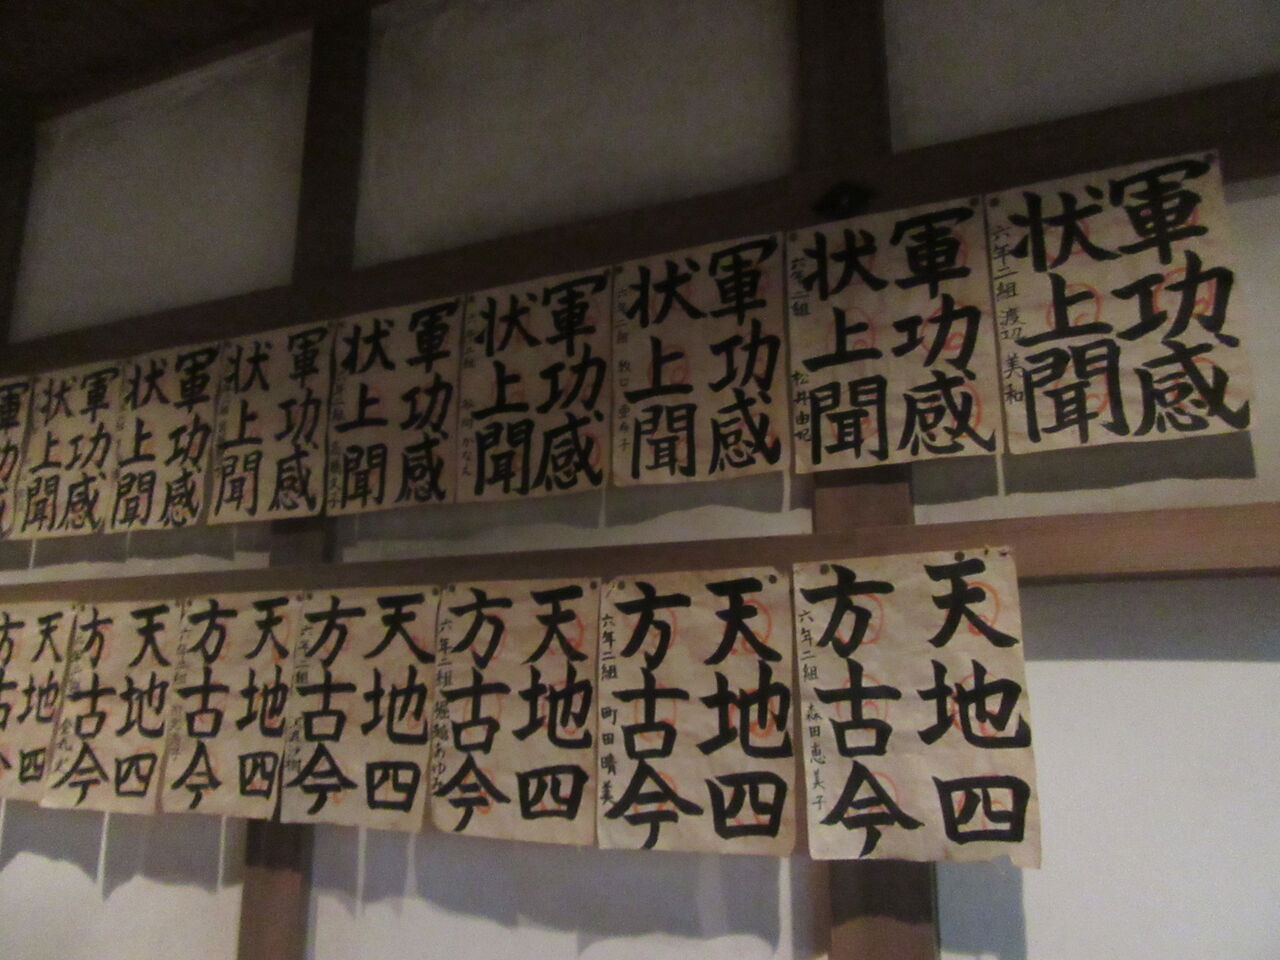 軍功感
状上聞
六年二組 渡辺 美和
軍功感
状上聞
六年二組 松井由記
軍功感
状上聞
軍功感
状上聞
軍功感
状上聞
軍功感
状上聞
軍功感
状上聞
軍功感
状上聞
軍功感
天地四
方古今
六年二組 森田恵美子
天地四
方古今
六年二組 町田晴美
天地四
方古今
六年二組 堀越あゆみ
天地四
方古今
六年二組
天地四
方古今
天地四
方古今
天地四
方古今